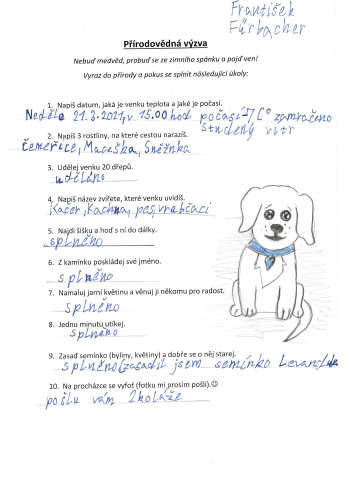 František
Fürbacher
Přírodovědná výzva
Nebuď medvěd, probuď se ze zimního spánku a pojď ven!
Vyraz do přírody a pokus se splnit následující úkoly:
1. Napiš datum, jaká je venku teplota a jaké je počasí.
Neděle 21.3.2021, v 15.00 hod počasí -7 C° zamračeno
studený vítr
2. Napiš 3 rostliny, na které cestou narazíš.
čemeřice, Maceška, Sněžnka
3. Udělej venku 20 dřepů.
uděláno
4. Napiš název zvířete, které venku uvidíš.
Kačer, Kachna, pes, vrabčáci
5. Najdi šišku a hoď s ní do dálky.
splněno
6. Z kamínku poskládej své jméno.
splněno
7. Namaluj jarní květinu a věnuj ji někomu pro radost.
splněno
8. Jednu minutu utíkej.
splněno
9. Zasaď semínko (byliny, květiny) a dobře se o něj starej.
splněno (zasadil jsem semínko Levandule
10. Na procházce se vyfoť (fotku mi prosím pošli).☺
pošlu vám 2 koláže